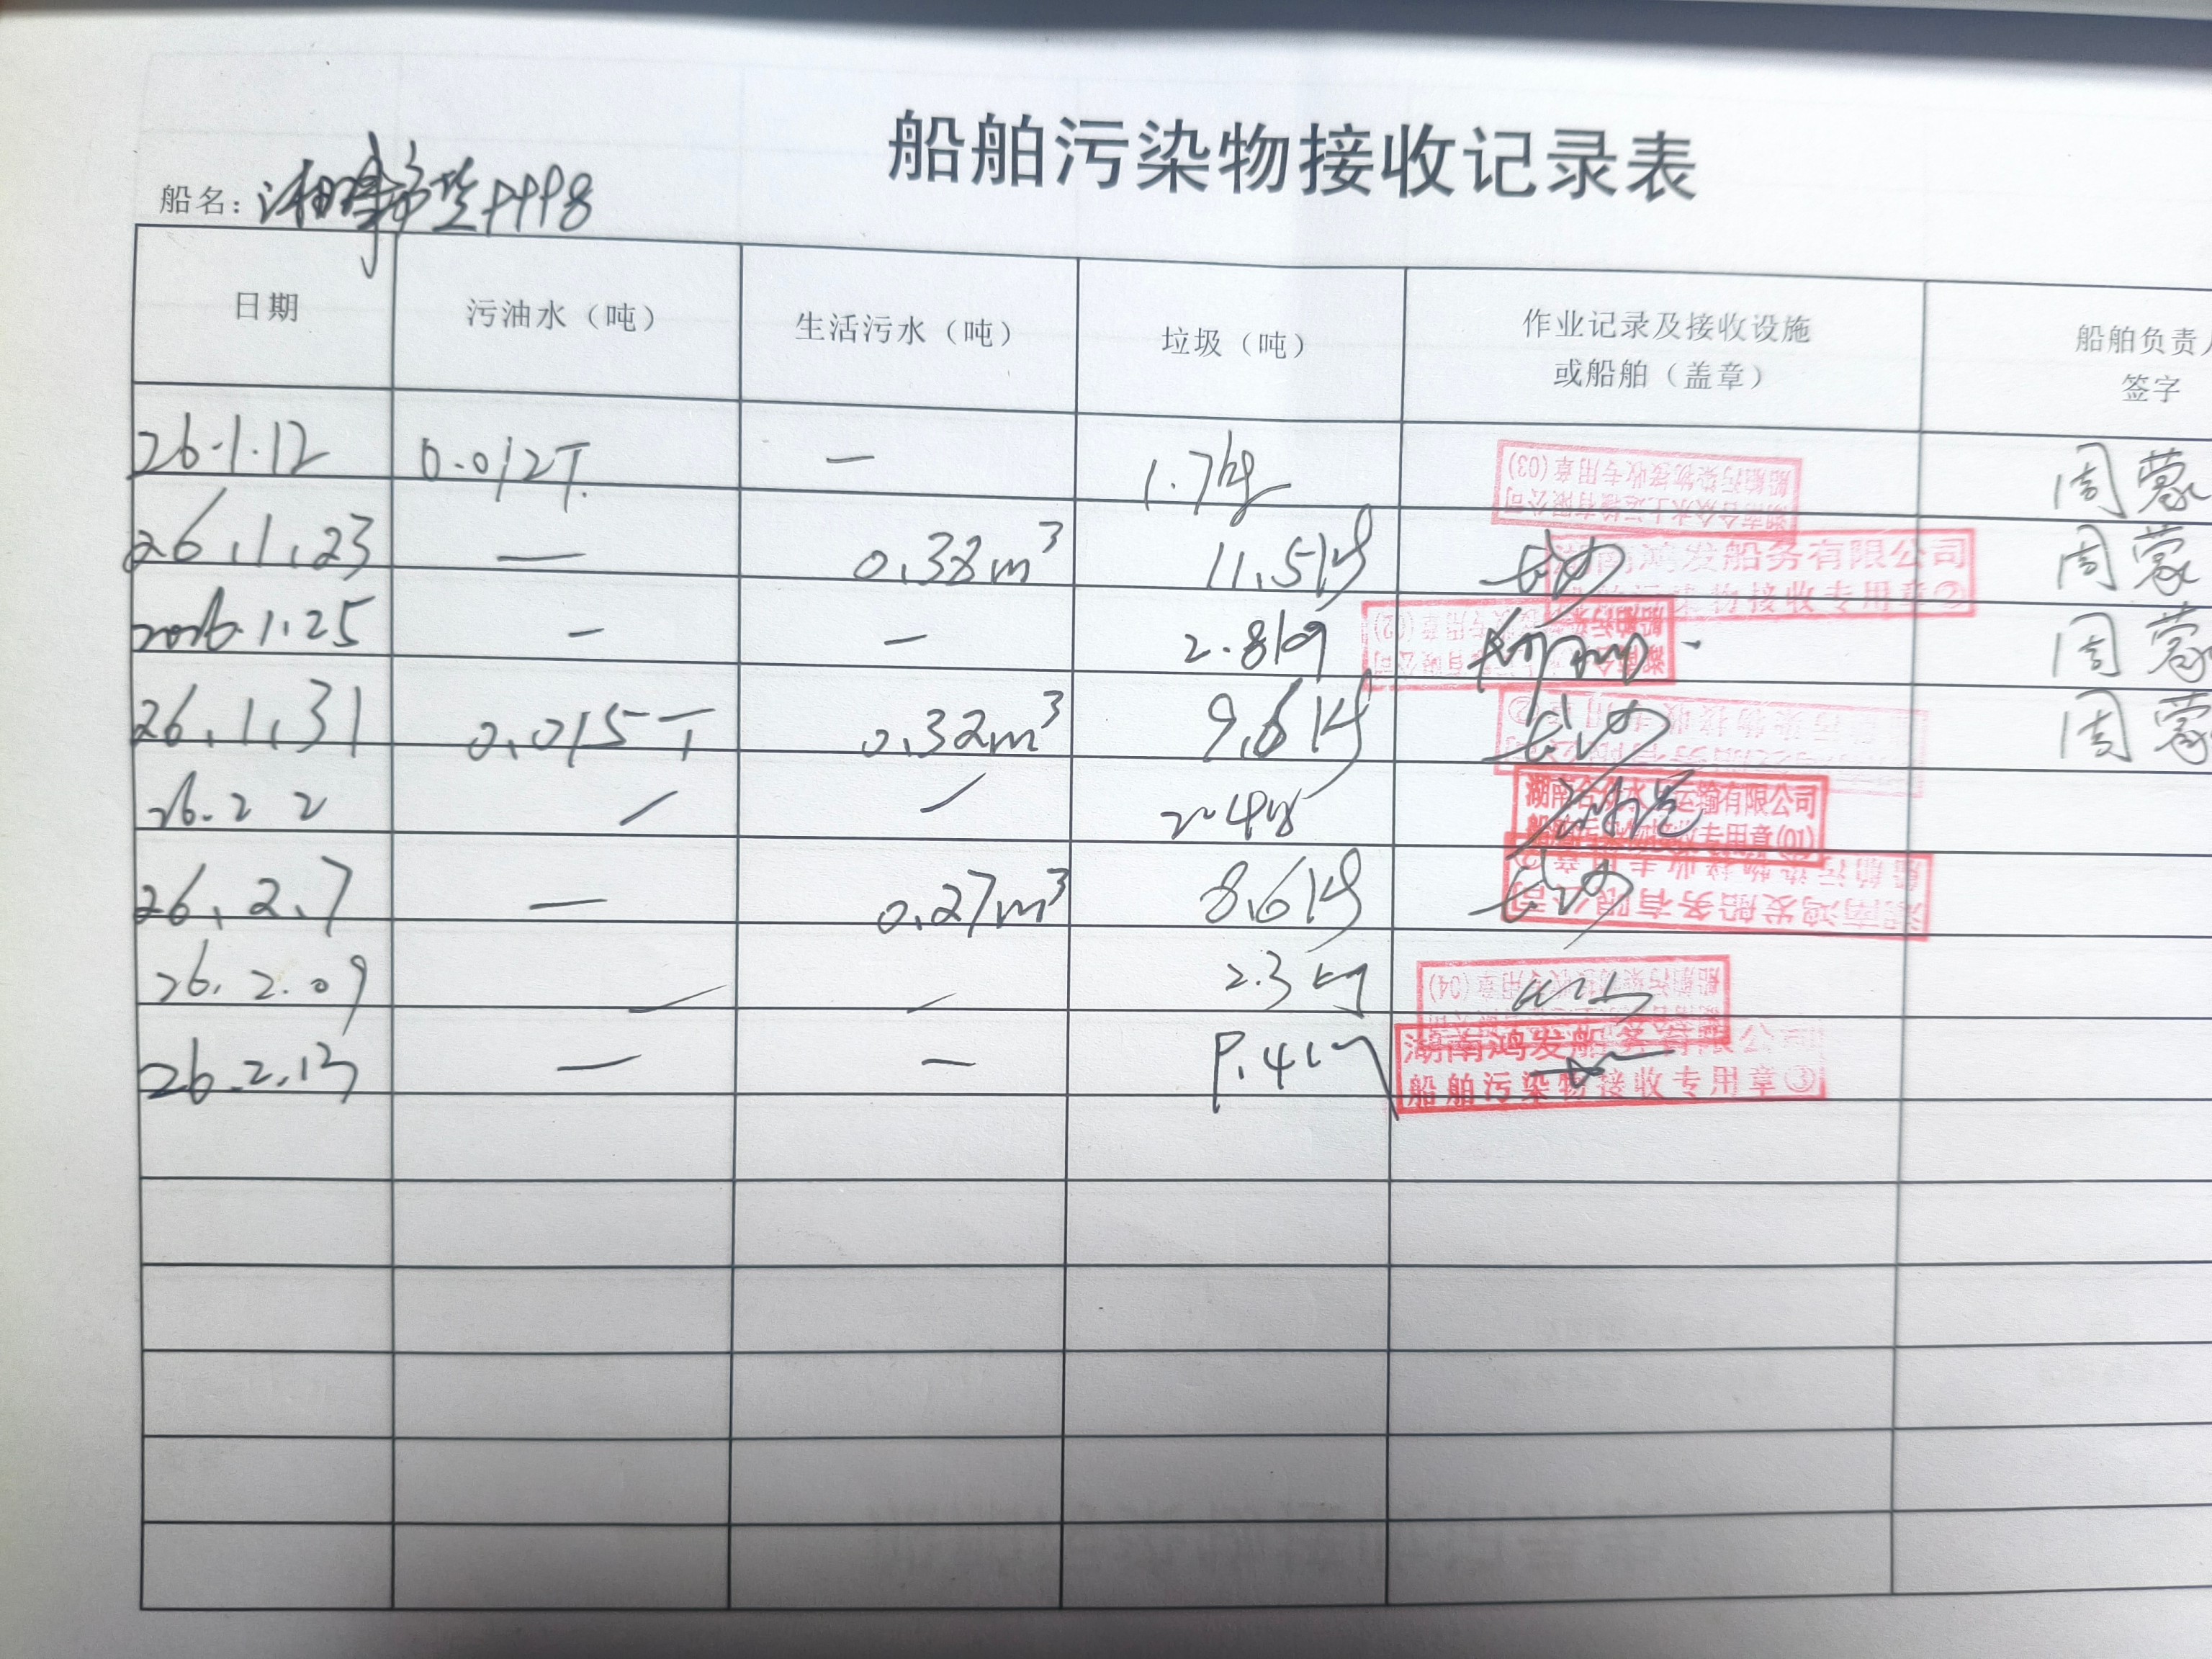 船舶污染物接收记录表
船名：
日期 污油水（吨） 生活污水（吨） 垃圾（吨） 作业记录及接收设施或船舶（盖章） 船舶负责人签字
26.1.12 0.012T. — 1.7kg 湖南合众水上运输有限公司 船舶污染物接收专用章(03) 周蒙
26.1.23 — 0.38m³ 11.5kg 长沙 湖南鸿发船务有限公司 船舶污染物接收专用章② 周蒙
2026.1.25 — — 2.8kg 周蒙
26.1.31 0.015T 0.32m³ 9.6kg 长沙 周蒙
26.2.2 / / 2.4kg 湖南合众水上运输有限公司 船舶污染物接收专用章(01)
26.2.7 — 0.27m³ 8.6kg 长沙 湖南鸿发船务有限公司 船舶污染物接收专用章②
26.2.09 / / 2.3kg 船舶污染物接收专用章(04)
26.2.13 — — 湖南鸿发船务有限公司 船舶污染物接收专用章③